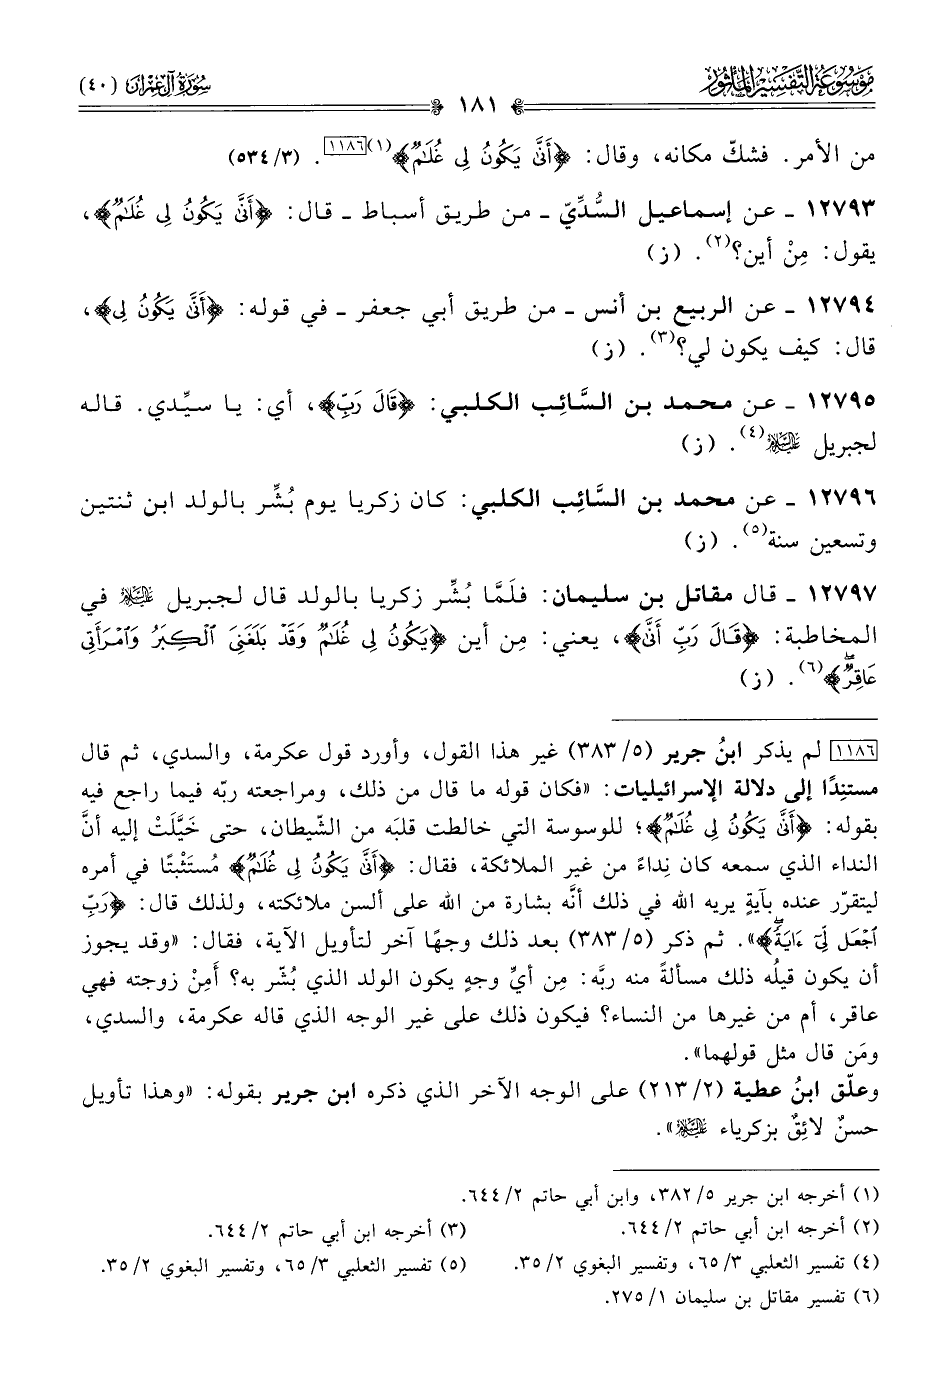 مَوْسُوعَة التَّفْسِير المَأْثُور
سُورَةُ آلِ عِمْرَان (٤٠)
١٨١
من الأمر. فشكّ مكانه، وقال: ﴿أَنَّىٰ يَكُونُ لِى غُلَـٰمٌ﴾(١)[١١٨٦]. (٥٣٤/٣)
١٢٧٩٣ ـ عن إسماعيل السُّدِّيّ ـ من طريق أسباط ـ قال: ﴿أَنَّىٰ يَكُونُ لِى غُلَـٰمٌ﴾،
يقول: مِنْ أين؟(٢). (ز)
١٢٧٩٤ ـ عن الربيع بن أنس ـ من طريق أبي جعفر ـ في قوله: ﴿أَنَّىٰ يَكُونُ لِى﴾،
قال: كيف يكون لي؟(٣). (ز)
١٢٧٩٥ ـ عن محمد بن السَّائِب الكلبي: ﴿قَالَ رَبِّ﴾، أي: يا سيِّدي. قاله
لجبريل عليه السلام(٤). (ز)
١٢٧٩٦ ـ عن محمد بن السَّائِب الكلبي: كان زكريا يوم بُشِّر بالولد ابن ثنتين
وتسعين سنة(٥). (ز)
١٢٧٩٧ ـ قال مقاتل بن سليمان: فلَمَّا بُشِّر زكريا بالولد قال لجبريل عليه السلام في
المخاطبة: ﴿قَالَ رَبِّ أَنَّىٰ﴾، يعني: مِن أين ﴿يَكُونُ لِى غُلَـٰمٌ وَقَدْ بَلَغَنِىَ ٱلْكِبَرُ وَٱمْرَأَتِى
عَاقِرٌۖ﴾(٦). (ز)
[١١٨٦] لم يذكر ابنُ جرير (٣٨٣/٥) غير هذا القول، وأورد قول عكرمة، والسدي، ثم قال
مستنِدًا إلى دلالة الإسرائيليات: «فكان قوله ما قال من ذلك، ومراجعته ربّه فيما راجع فيه
بقوله: ﴿أَنَّىٰ يَكُونُ لِى غُلَـٰمٌ﴾؛ للوسوسة التي خالطت قلبَه من الشّيطان، حتى خَيَّلَتْ إليه أنَّ
النداء الذي سمعه كان نِداءً من غير الملائكة، فقال: ﴿أَنَّىٰ يَكُونُ لِى غُلَـٰمٌ﴾ مُستَثْبتًا في أمره
ليتقرّر عنده بآيةٍ يريه الله في ذلك أنَّه بشارة من الله على ألسن ملائكته، ولذلك قال: ﴿رَبِّ
ٱجْعَل لِّىٓ ءَايَةًۖ﴾». ثم ذكر (٣٨٣/٥) بعد ذلك وجهًا آخر لتأويل الآية، فقال: «وقد يجوز
أن يكون قيلُه ذلك مسألةً منه ربَّه: مِن أيِّ وجهٍ يكون الولد الذي بُشّر به؟ أَمِنْ زوجته فهي
عاقر، أم من غيرها من النساء؟ فيكون ذلك على غير الوجه الذي قاله عكرمة، والسدي،
ومَن قال مثل قولهما».
وعلّق ابنُ عطية (٢١٣/٢) على الوجه الآخر الذي ذكره ابن جرير بقوله: «وهذا تأويل
حسنٌ لائِقٌ بزكرياء عليه السلام».
(١) أخرجه ابن جرير ٣٨٢/٥، وابن أبي حاتم ٦٤٤/٢.
(٢) أخرجه ابن أبي حاتم ٦٤٤/٢. (٣) أخرجه ابن أبي حاتم ٦٤٤/٢.
(٤) تفسير الثعلبي ٦٥/٣، وتفسير البغوي ٣٥/٢. (٥) تفسير الثعلبي ٦٥/٣، وتفسير البغوي ٣٥/٢.
(٦) تفسير مقاتل بن سليمان ٢٧٥/١.